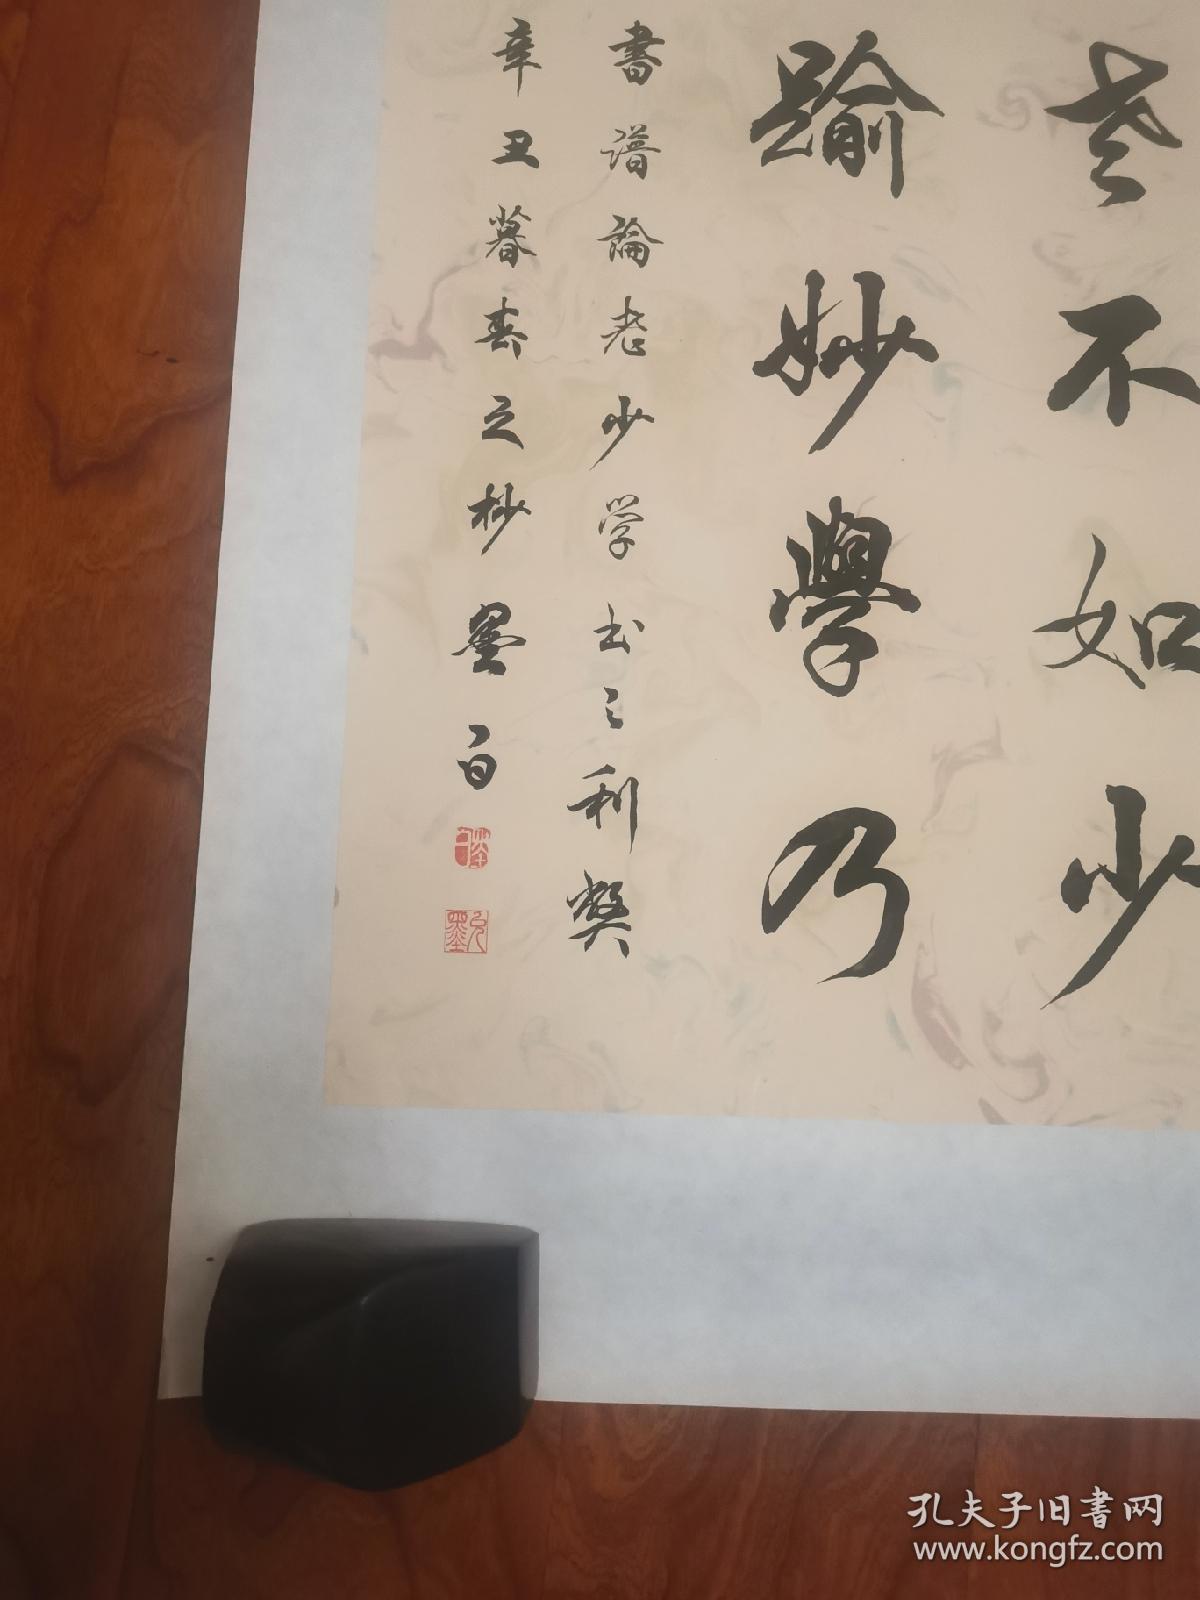 老不如少
踰妙學乃
書譜論老少学书之利獘
辛丑暮春之杪墨白
孔夫子旧書网
www.kongfz.com